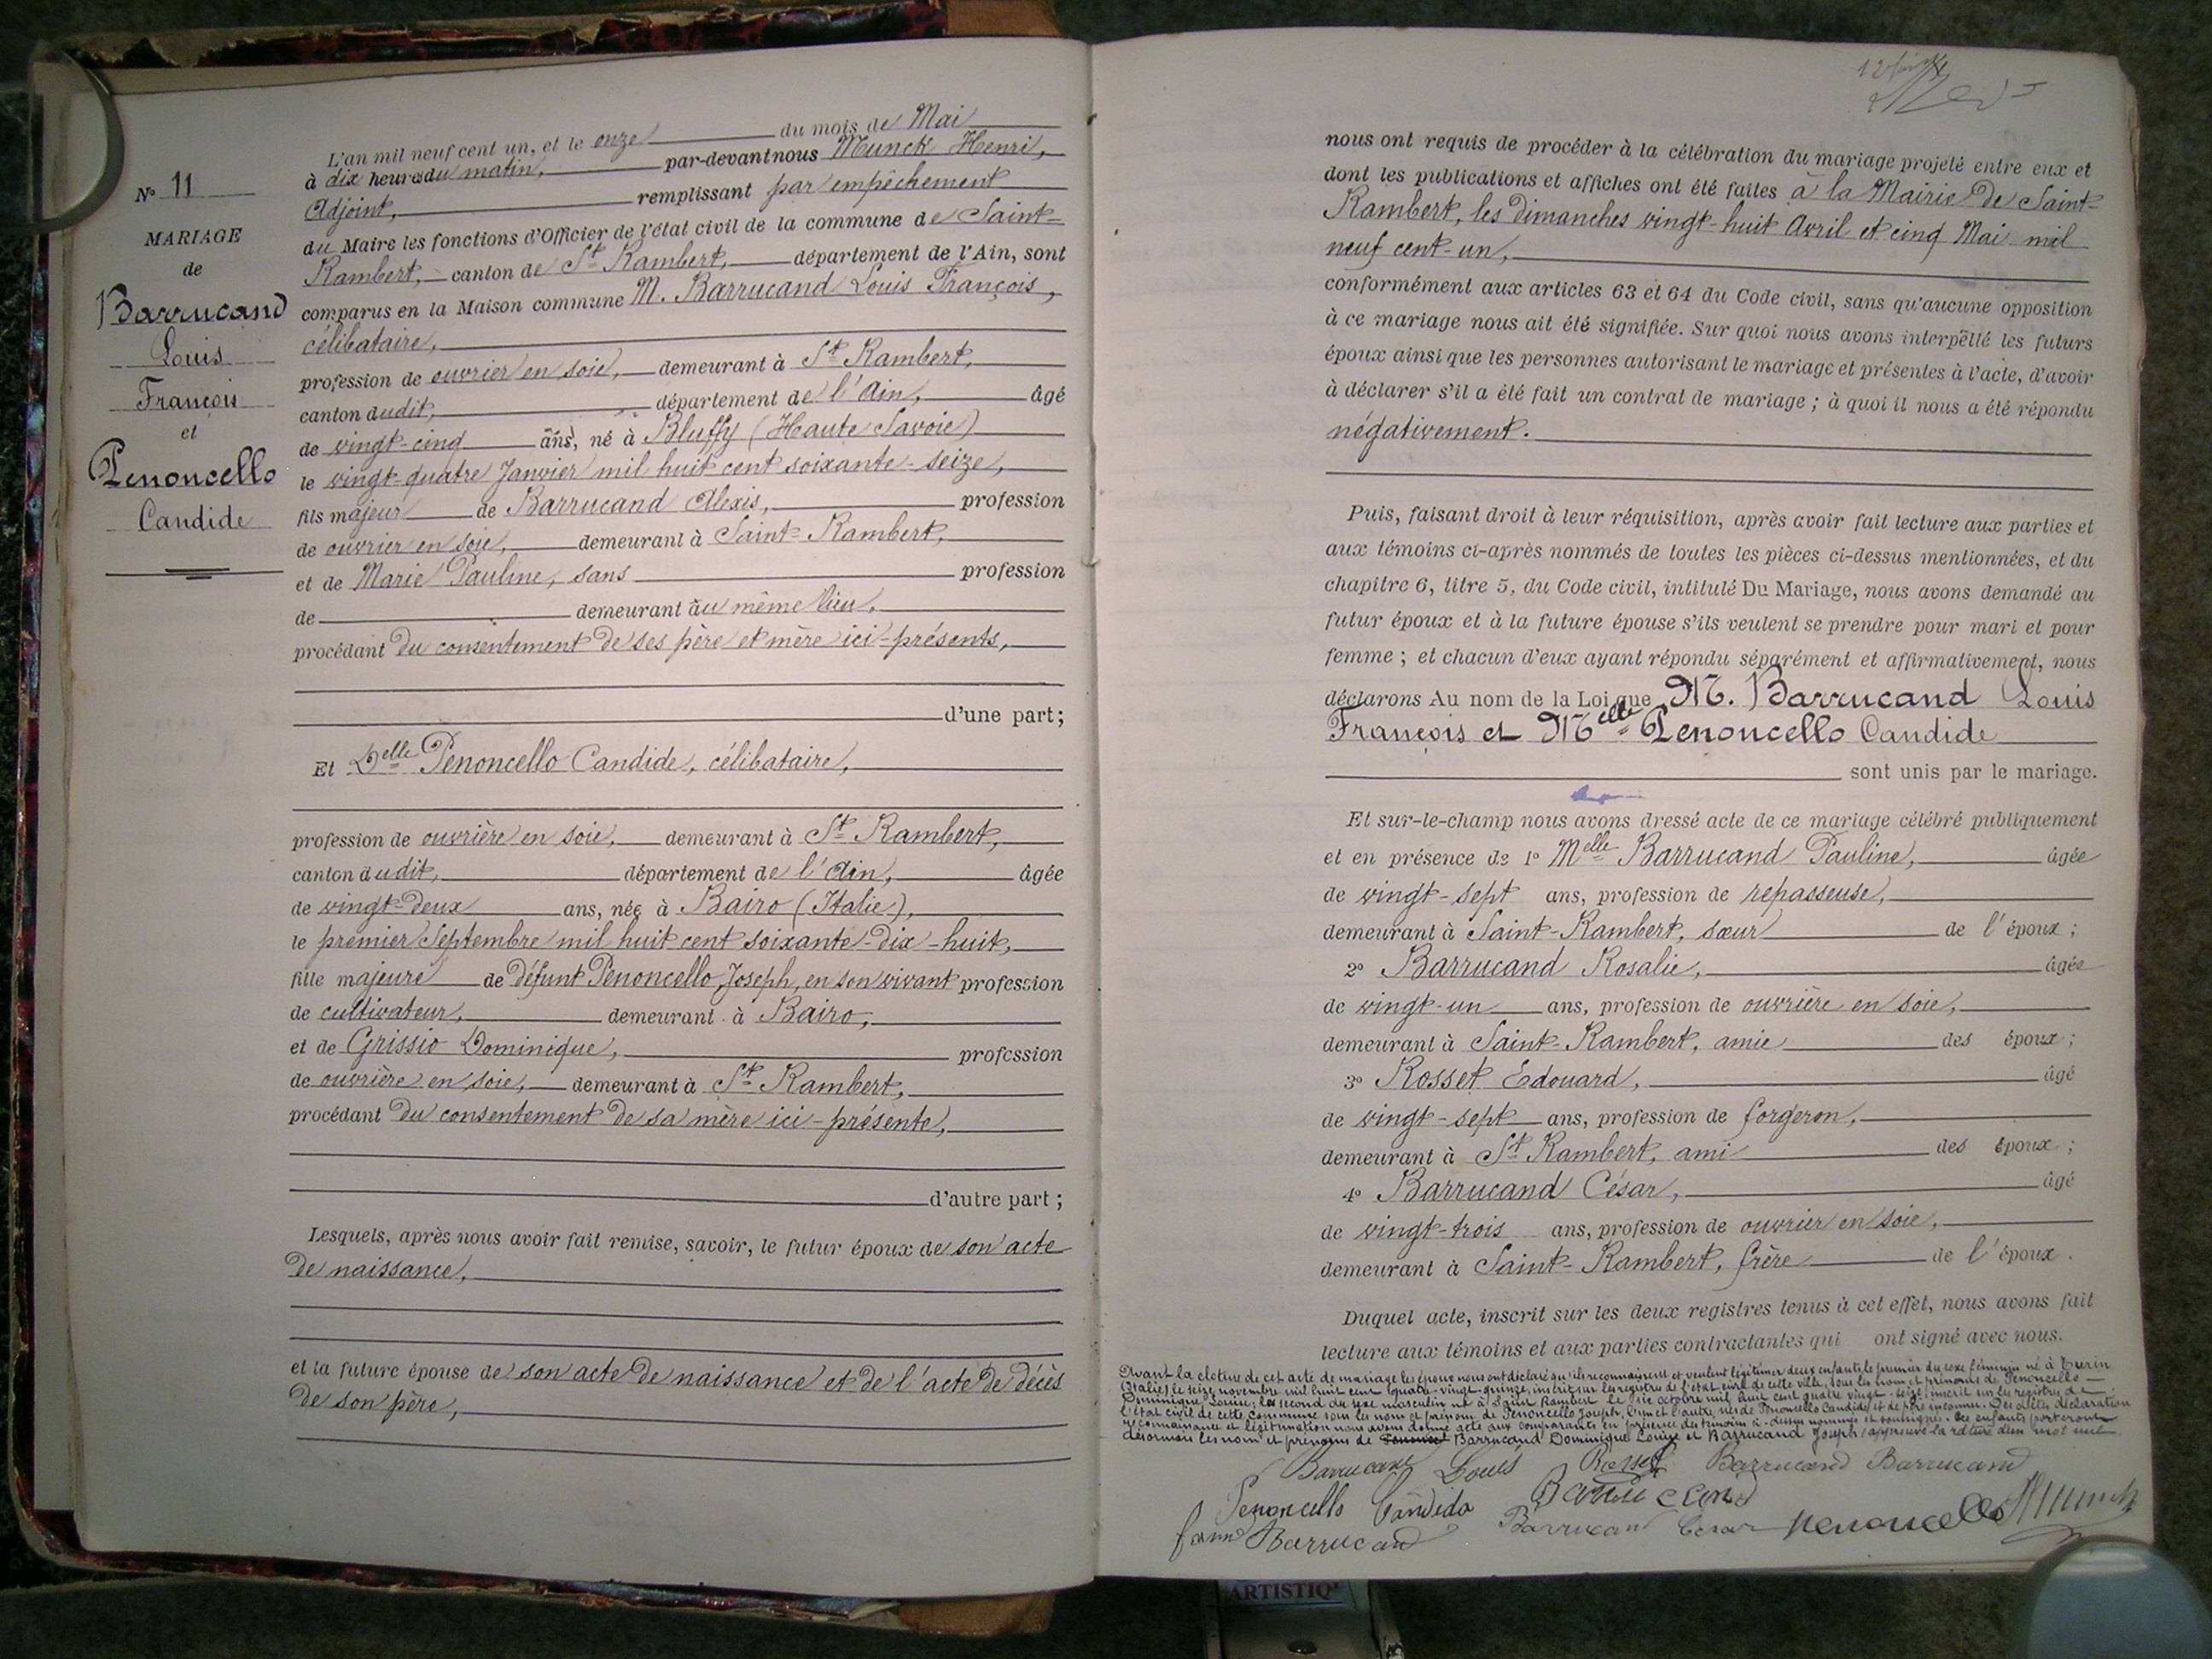 Nº 11
MARIAGE
de
Barrucand
Louis
François
et
Penoncello
Candide
L'an mil neuf cent un, et le onze du mois de Mai
à dix heures du matin, par-devant nous Munck Henri,
Adjoint, remplissant par empêchement
du Maire les fonctions d'Officier de l'état civil de la commune de Saint-
Rambert, canton de St Rambert, département de l'Ain, sont
comparus en la Maison commune M. Barrucand Louis François,
célibataire,
profession de ouvrier en soie, demeurant à St Rambert,
canton dudit, département de l'Ain, âgé
de vingt-cinq ans, né à Bluffy (Haute Savoie)
le vingt-quatre Janvier mil huit cent soixante-seize,
fils majeur de Barrucand Alexis, profession
de ouvrier en soie, demeurant à Saint-Rambert,
et de Marie Pauline, sans profession
de demeurant au même lieu,
procédant du consentement de ses père et mère ici-présents,
d'une part;
Et Delle Penoncello Candide, célibataire,
profession de ouvrière en soie, demeurant à St Rambert,
canton dudit, département de l'Ain, âgée
de vingt-deux ans, née à Bairo (Italie),
le premier Septembre mil huit cent soixante-dix-huit,
fille majeure de défunt Penoncello Joseph, en son vivant profession
de cultivateur, demeurant à Bairo,
et de Grissio Dominique, profession
de ouvrière en soie, demeurant à St Rambert,
procédant du consentement de sa mère ici-présente,
d'autre part;
Lesquels, après nous avoir fait remise, savoir, le futur époux de son acte
de naissance,
et la future épouse de son acte de naissance et de l'acte de décès
de son père,
nous ont requis de procéder à la célébration du mariage projeté entre eux et
dont les publications et affiches ont été faites à la Mairie de Saint-
Rambert, les dimanches vingt-huit Avril et cinq Mai mil
neuf cent-un,
conformément aux articles 63 et 64 du Code civil, sans qu'aucune opposition
à ce mariage nous ait été signifiée. Sur quoi nous avons interpellé les futurs
époux ainsi que les personnes autorisant le mariage et présentes à l'acte, d'avoir
à déclarer s'il a été fait un contrat de mariage; à quoi il nous a été répondu
négativement.
Puis, faisant droit à leur réquisition, après avoir fait lecture aux parties et
aux témoins ci-après nommés de toutes les pièces ci-dessus mentionnées, et du
chapitre 6, titre 5, du Code civil, intitulé Du Mariage, nous avons demandé au
futur époux et à la future épouse s'ils veulent se prendre pour mari et pour
femme; et chacun d'eux ayant répondu séparément et affirmativement, nous
déclarons Au nom de la Loi que M. Barrucand Louis
François et Melle Penoncello Candide
sont unis par le mariage.
Et sur-le-champ nous avons dressé acte de ce mariage célébré publiquement
et en présence de 1º Melle Barrucand Pauline, âgée
de vingt-sept ans, profession de repasseuse,
demeurant à Saint-Rambert, sœur de l'époux;
2º Barrucand Rosalie, âgée
de vingt-un ans, profession de ouvrière en soie,
demeurant à Saint-Rambert, amie des époux;
3º Rosset Edouard, âgé
de vingt-sept ans, profession de forgeron,
demeurant à St Rambert, ami des époux;
4º Barrucand César, âgé
de vingt-trois ans, profession de ouvrier en soie,
demeurant à Saint-Rambert, frère de l'époux.
Duquel acte, inscrit sur les deux registres tenus à cet effet, nous avons fait
lecture aux témoins et aux parties contractantes qui ont signé avec nous.
Avant la cloture de cet acte de mariage les époux nous ont déclaré qu'ils reconnaissent et veulent légitimer deux enfants le premier du sexe féminin né à Turin
(Italie) le seize novembre mil huit cent quatre-vingt-quinze, inscrit sur les registres de l'état civil de cette ville, sous les nom et prénoms de Penoncello
Dominique Louise; le second du sexe masculin né à Saint Rambert le octobre mil huit cent quatre vingt-seize inscrit sur les registres de
l'état civil de cette commune sous les nom et prénom de Penoncello Joseph, l'un et l'autre nés de Penoncello Candide et de père inconnu. Des dites déclaration
reconnaissance et légitimation nous avons donné acte aux comparants en présence des témoins ci-dessus nommés et soussignés. Les enfants porteront
désormais les nom et prénoms de Barrucand Dominique Louise et Barrucand Joseph, approuvé la rature d'un mot nul
Barrucand Louis Rosset Barrucand Barrucand
Penoncello Candida Barrucand
femme Barrucand Barrucand César Penoncello Munck
ARTISTIQ